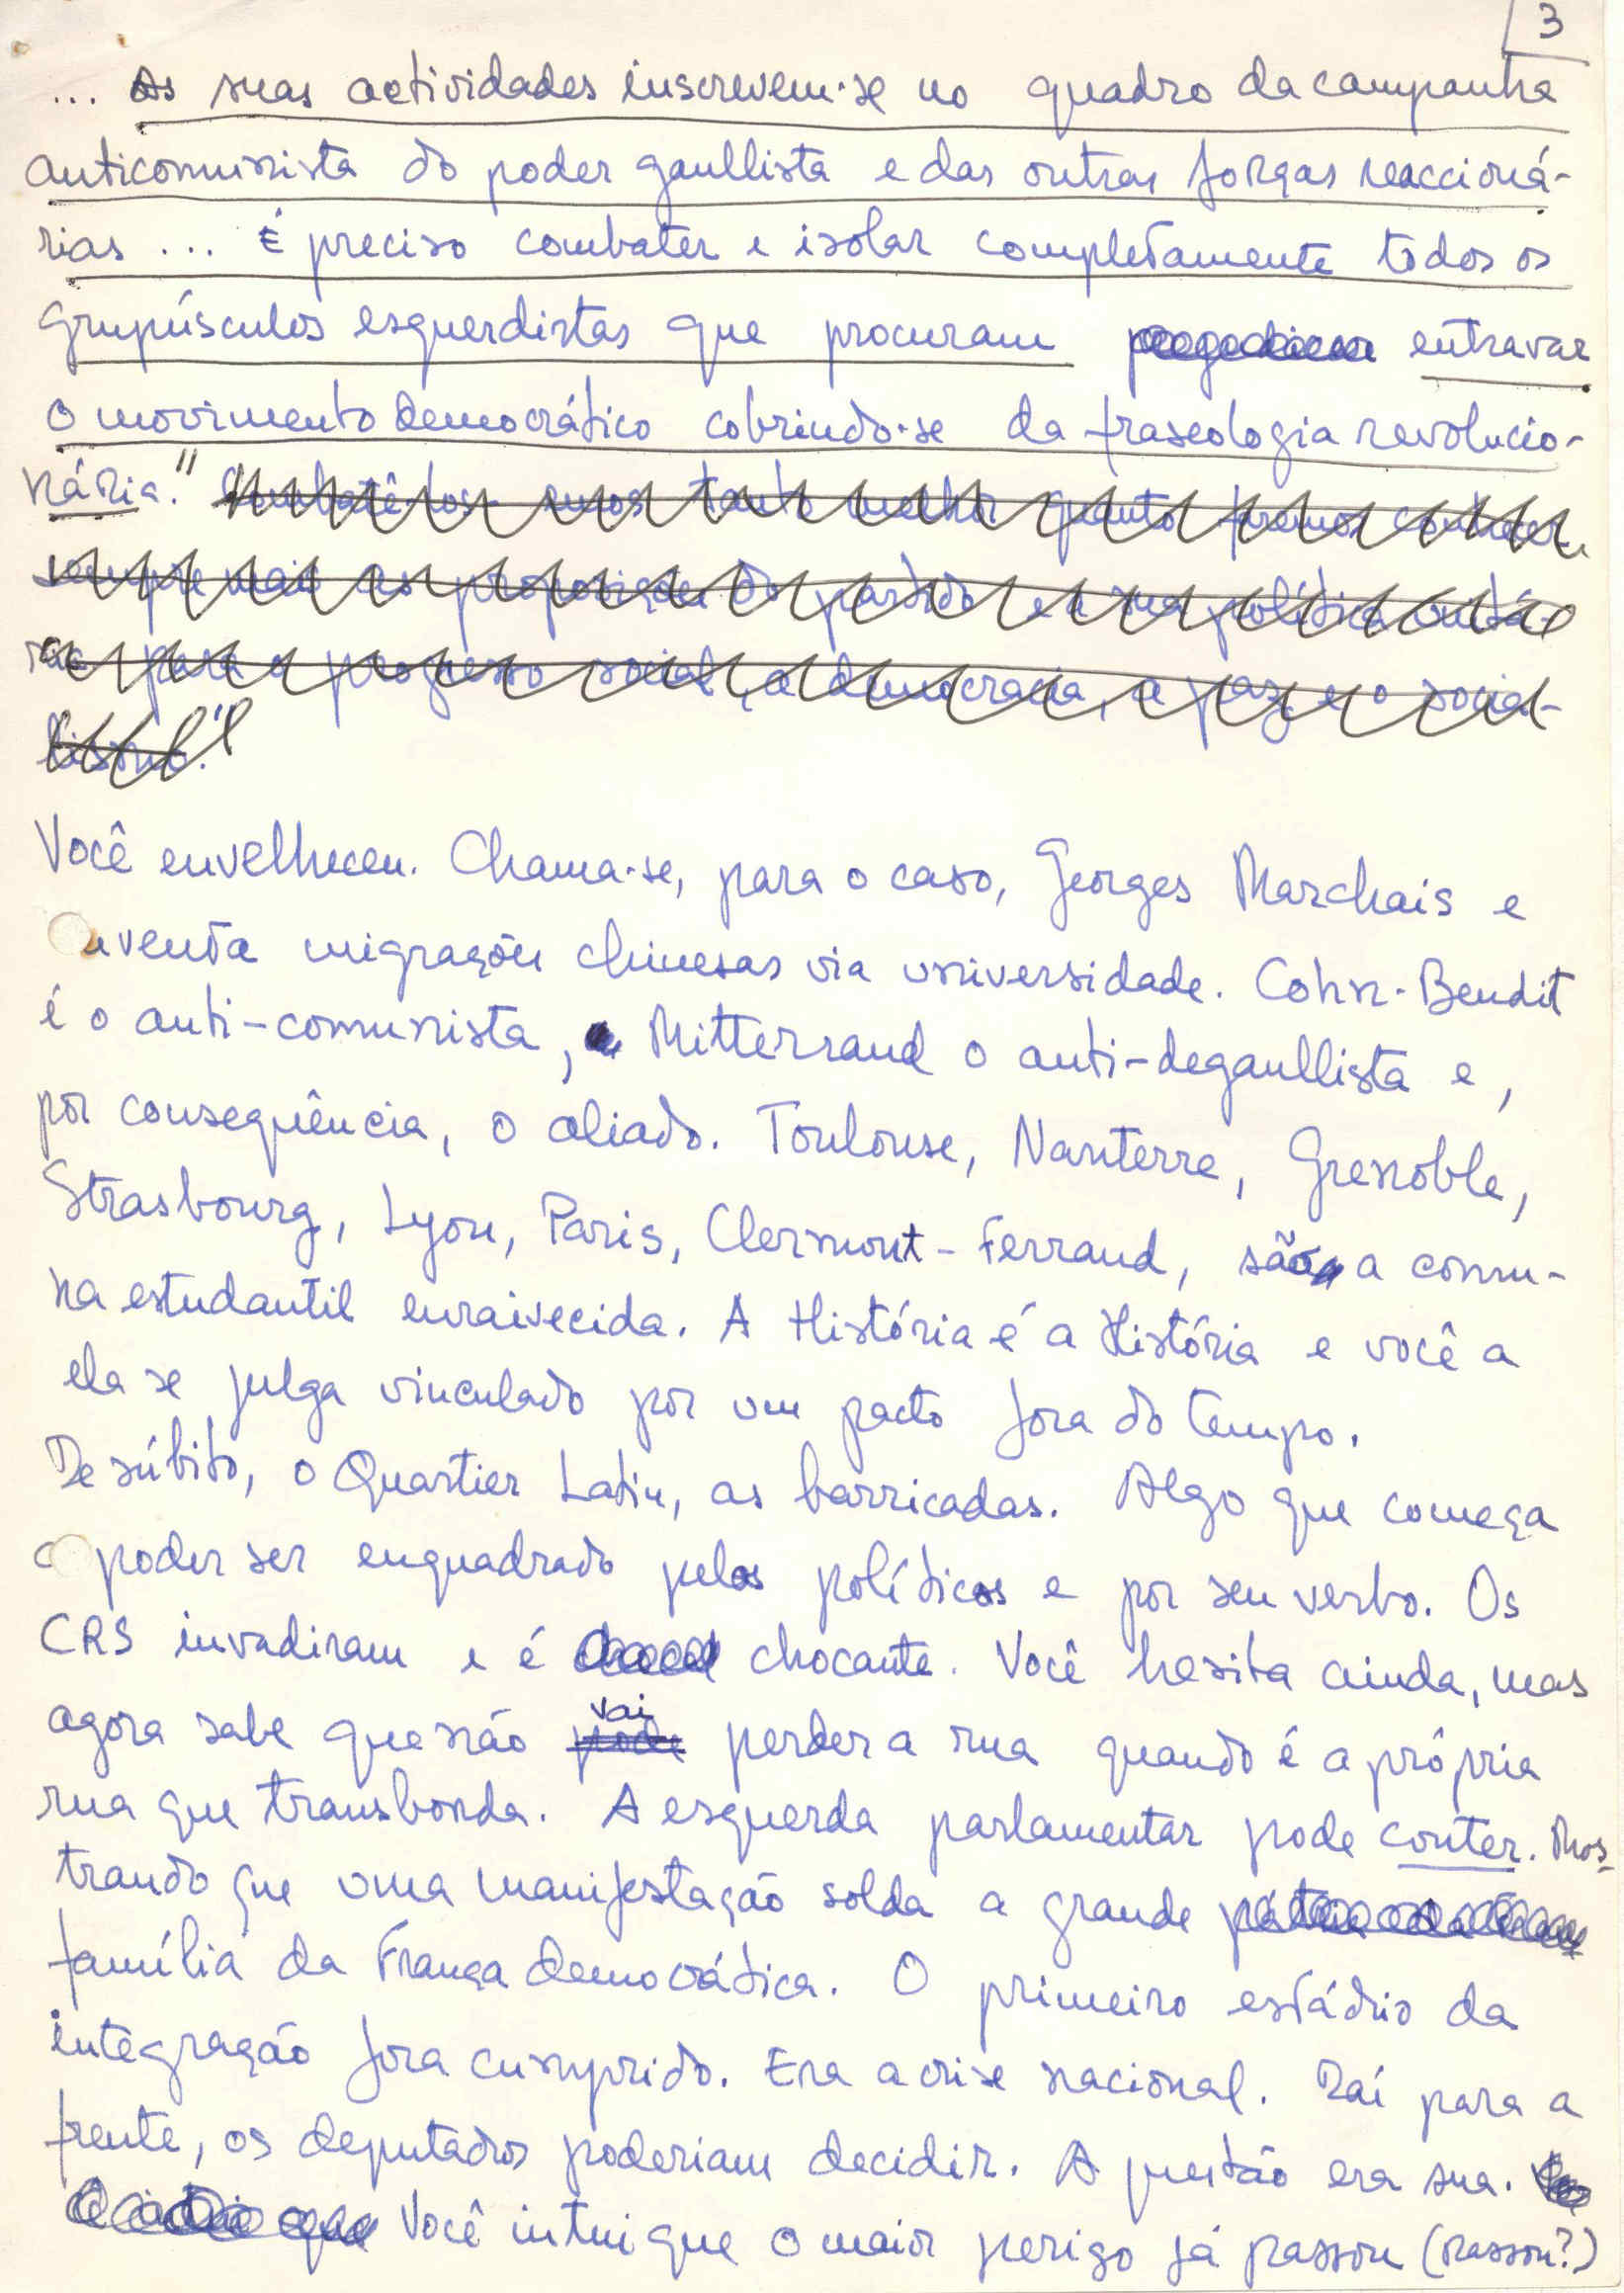 3
... As suas actividades inscrevem-se no quadro da campanha
anticomunista do poder gaullista e das outras forças reaccioná-
rias ... É preciso combater e isolar completamente todos os
grupúsculos esquerdistas que procuram entravar
o movimento democrático cobrindo-se da fraseologia revolucio-
nária." Combatê-los-emos tanto melhor quanto fizermos conhecer
sempre mais as proposições do partido e a sua política unitá-
ria para o progresso social, a democracia, a paz e o socia-
lismo."
Você envelheceu. Chama-se, para o caso, Georges Marchais e
inventa migrações chinesas via universidade. Cohn-Bendit
é o anti-comunista, Mitterrand o anti-degaullista e,
por consequência, o aliado. Toulouse, Nanterre, Grenoble,
Strasbourg, Lyon, Paris, Clermont-Ferrand, são a comu-
na estudantil enraivecida. A História é a História e você a
ela se julga vinculado por um pacto fora do tempo.
De súbito, o Quartier Latin, as barricadas. Algo que começa
a poder ser enquadrado pelos políticos e por seu verbo. Os
CRS invadiram e é chocante. Você hesita ainda, mas
agora sabe que não pode vai perder a rua quando é a própria
rua que transborda. A esquerda parlamentar pode conter. Mos-
trando que uma manifestação solda a grande
família da França democrática. O primeiro estádio da
integração fora cumprido. Era a crise nacional. Daí para a
frente, os deputados poderiam decidir. A questão era sua.
Você intui que o maior perigo já passou (passou?)